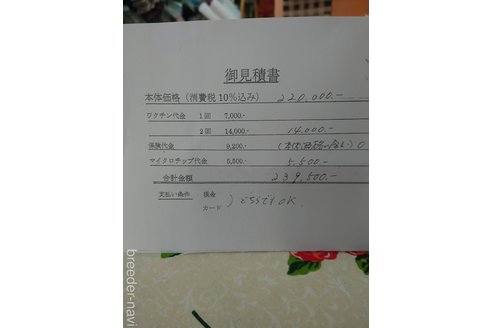 御見積書
本体価格（消費税10%込み） 220,000.-
ワクチン代金 1回 7,000.-
2回 14,000.- 14,000.-
保険代金 9,200.- (本体価格に含む) 0
マイクロチップ代金 5,500.- 5,500.-
合計金額 239,500.-
支払い条件 現金
カード ) どちらでもOK.
breeder-navi